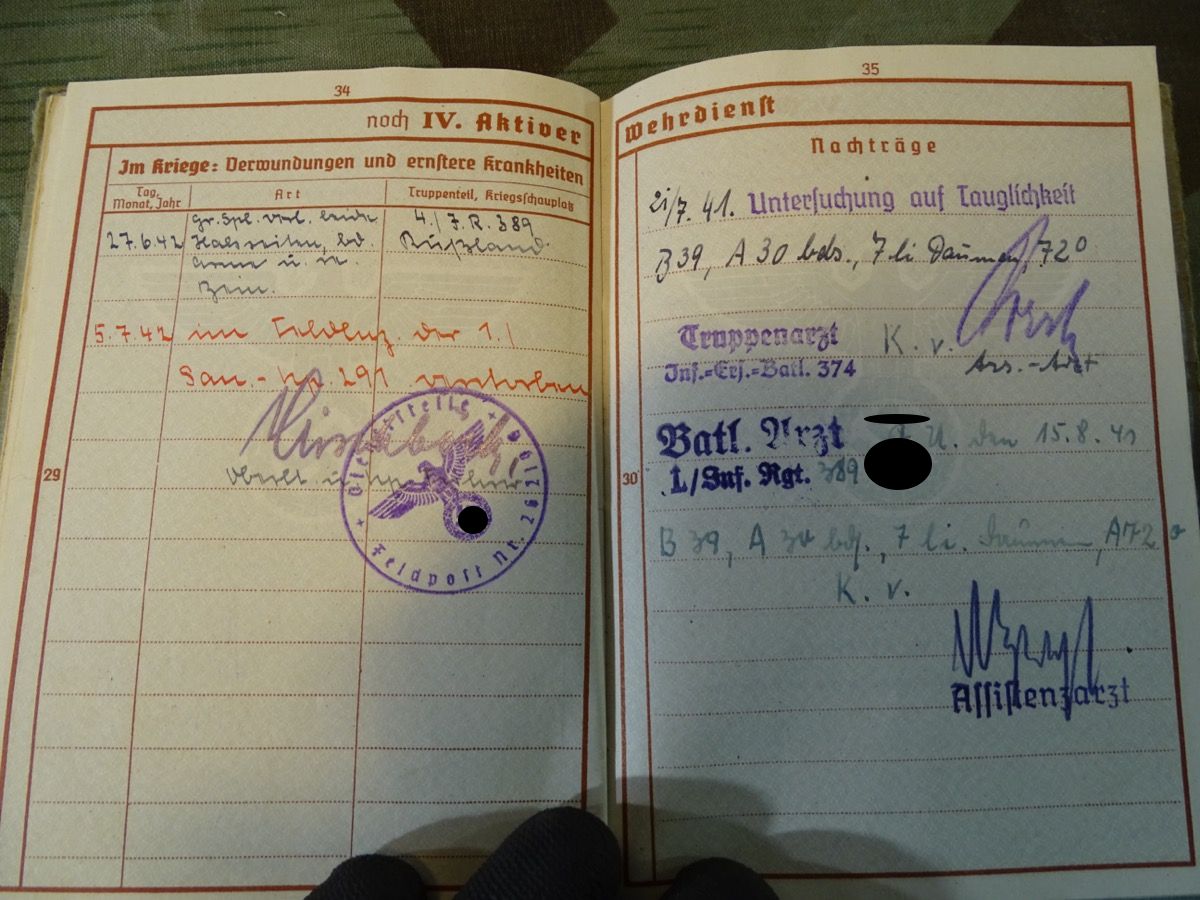 34
noch IV. Aktiver
Im Kriege: Verwundungen und ernstere Krankheiten
Tag, Monat, Jahr
Art
Truppenteil, Kriegsschauplatz
27.6.42
Gr. Spl. Verl. beide
Halsseiten, bd.
Arme u.
4./J.R. 389
Rußland
5.7.42 im Feldlaz. der 1./
San.-Kp 291 verstorben
29
Dienststelle
Feldpost Nr.
35
Wehrdienst
Nachträge
21/7. 41. Untersuchung auf Tauglichkeit
B 39, A 30 bds., 7 li Daumen, 72⁰
Truppenarzt
K. v.
Inf.=Ers.=Batl. 374
Ass.-Arzt
Batl. Arzt
U. den 15.8.41
I./Inf. Rgt. 389
30
B 39, A 30 bds., 7 li. Daumen, A72
K. v.
Assistenzarzt